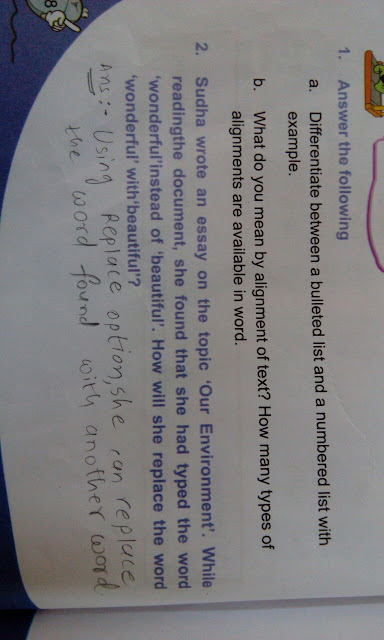 1. Answer the following
a. Differentiate between a bulleted list and a numbered list with
example.
b. What do you mean by alignment of text? How many types of
alignments are available in word.
2. Sudha wrote an essay on the topic 'Our Environment'. While
readingthe document, she found that she had typed the word
'wonderful'instead of 'beautiful'. How will she replace the word
'wonderful' with'beautiful'?
Ans:- Using Replace option, she can replace
the word found with another word.
8